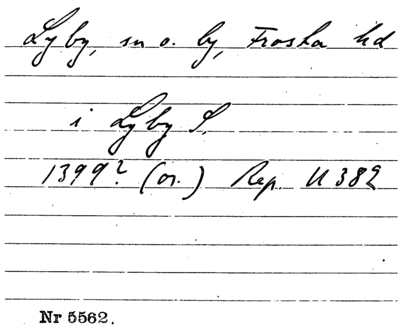 Lyby, sn o. by, Frosta hd
i Lyby S.
1399? (or.) Rep II 382
Nr 5562.